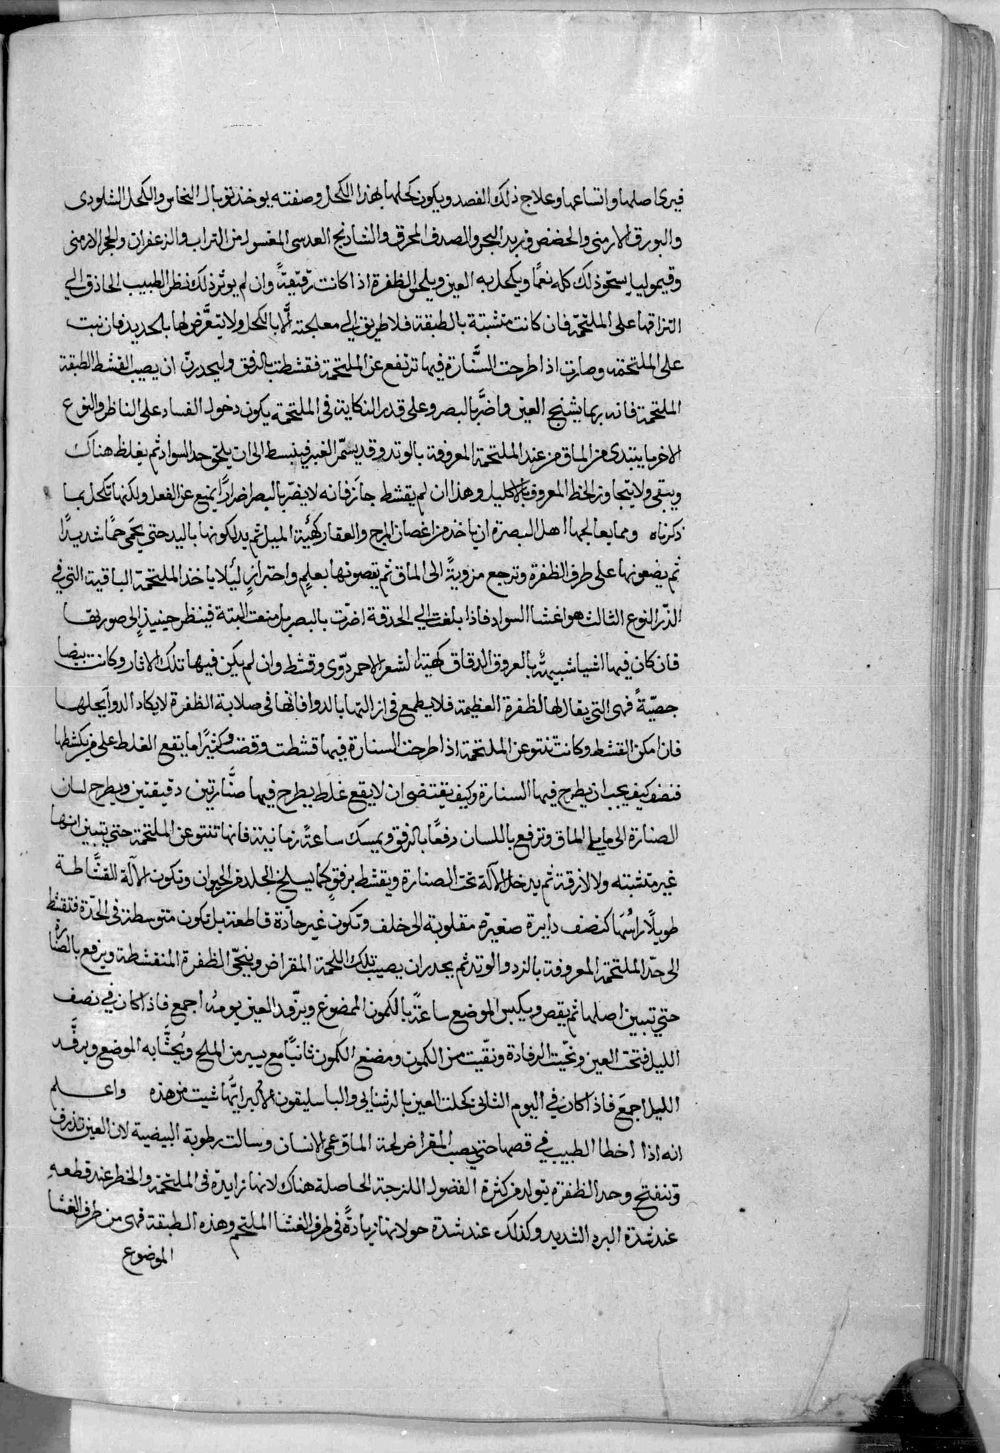 فيرى اصلها واتساعها وعلاج ذلك الفصد ويكون كحلها بهذا الكحل وصفته يوخذ توبال النحاس والكحل الشلودى
والبورق الارمنى والحضض وزبد البحر والصدف المحرق والشاذنج العدسى المغسول من التراب والزعفران والحجر الارمنى
وقيموليا يسحق ذلك كله نعمًا ويكحل به العين ويلحق الظفرة اذا كانت رقيقةً وان لم يوثر ذلك نظر الطبيب الحاذق الي
التزاقها على الملتحمة فان كانت متشبتة بالطبقة فلا طريق الي معلجته الا بالكحل ولا يتعرض لها بالحديد فان نبت
على الملتحمة وصارت اذا طرحت السنارة فيها ترتفع عن الملتحمة فقشطت بالرفق وليحدرن ان يصيب القشط الطبقة
الملتحمة فانه ربما يشنج العين واضر بالبصر وعلى قدر النكاية في الملتحمة يكون دخول الفساد على الناظر والنوع
الاخر ما يبتدى من الماق من عند الملتحمة المعروفة بالوتد وقد يسمر الغير فينبسط الى ان يلحق حد السواد ثم يغلظ هناك
ويبقى ولا يتجاوز الخط المعروف بالاكليل وهذا ان لم يقشط جاز فانه لا يضر بالبصر اضرارًا يمنع عن الفعل ولكنها تكحل بما
ذكرناه ومما يعالجها اهل البصرة ان ياخذ من اغصان المرج والعقار كهئية الميل ثم يدلكونها باليد حتى يحمى حمًا شديدًا
ثم يضعونها على طرف الظفرة وترجع مزويةً الى الماق ثم يقصونها بعلمٍ واحترازٍ ليلا ياخذ الملتحمة الباقية التى في
الذر النوع الثالث هو اغشا السواد فاذا بلغت الي الحدقة اضرت بالبصر بل منعت البتة فينظر حينيذٍ الى صورتها
فان كان فيها اشيا شبيهة بالعروق الدقاق كهئية الشعر الاحمر دوى وقشط وان لم يكن فيها تلك الاثار وكانت بيضا
جصيةً فهى التي يقال لها الظفرة العظيمة فلا يطمع في ازالتها بالدوا فانها في صلابة الظفرة لا يكاد الدوا يحلها
فان امكن القشط وكانت تنتو عن الملتحمة اذا طرحت السنارة فيها قشطت وقصت وكثيرًا ما يقع الغلط على من يكشطها
فنصف كيف يجب ان يطرح فيها السنارة وكيف يقتضى ان لا يقع غلط يطرح فيها صنارتين دقيقتين ويطرح لسان
الصنارة الى ما يلي الماق وترفع باللسان دفعًا بالرفق ويمسك ساعةً زمانية فانها تنتو عن الملتحمة حتى يتبين انها
غير متشبته ولا لازقة ثم يدخل الالة تحت الصنارة ويقشط برفقٍ كما يسلخ الجلد من الحيوان وتكون الآلة القشاطة
طويلًا راسُها كنصف دايرة صغيرة مقلوبة الى خلف وتكون غير حادة قاطعة بل تكون متوسطة في الحدة فتقشط
الى حد الملتحمة المعروفة بالزد والوتد ثم يحدر ان يصيب تلك اللحمة المقراض وينحى الظفرة المنقشطة ويرفع بالصنارة
حتي تبيين اصلها ثم يقص ويكبس الموضع ساعةً بالكمون الممضوغ ويرفد العين يومهُ اجمع فاذا كان في نصف
الليل فتحت العين ونحيت الرفادة ونقيت من الكمون ومضغ الكمون ثانيًا مع يسير من الملح ويُحشّا به الموضع ويرفد
الليل اجمَع فاذا كان في اليوم الثانى كحلت العين بالرشنايى والباسليقون الاكبر ايهما شيت من هذه واعلم
انه اذا اخطا الطبيب في قصها حتي يصيب المقراض لحمة الماق عمي الانسان وسالت رطوبة البيضية لان العين تذرف
وتنفتح وحد الظفرة يتولد من كثرة الفضول اللزجة الحاصلة هناك لانها زايدة في الملتحمة والخطر عند قطعه
عند شدة البرد الشديد وكذلك عند شدة حولانها زيادةً في طرف الغشا الملتحم وهذه الطبقة فهى من طرف الغشا
الموضوع